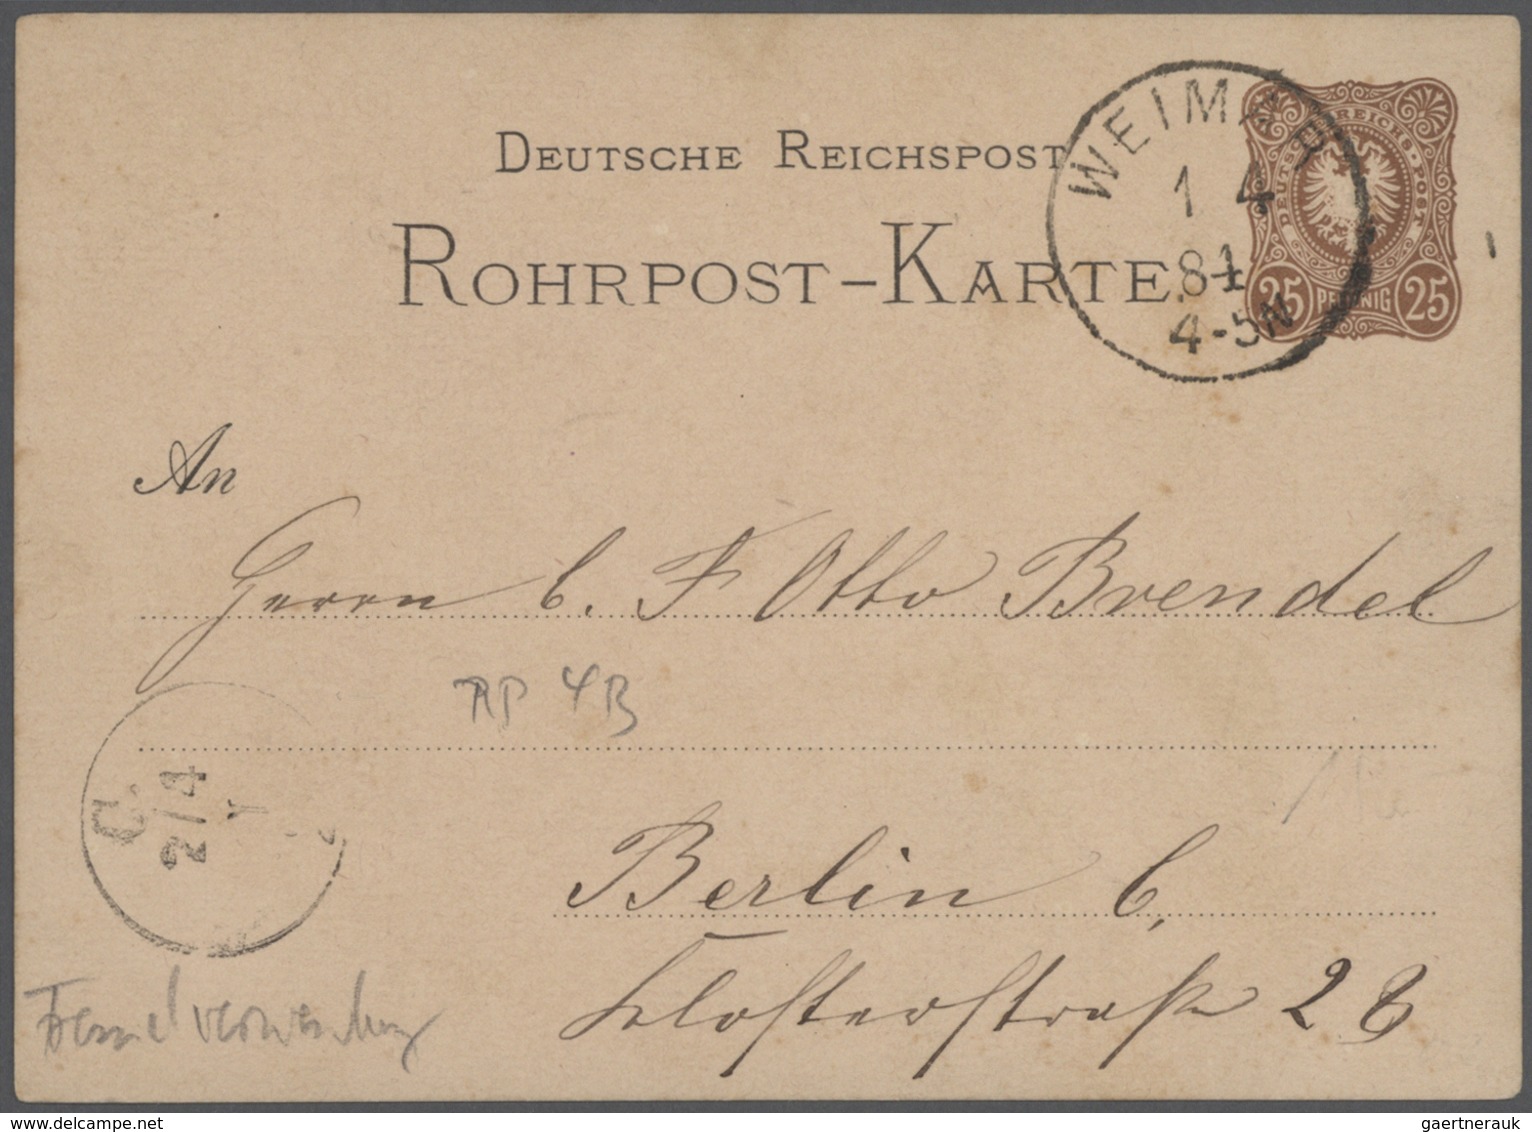 DEUTSCHE REICHSPOST
ROHRPOST-KARTE.
WEIMAR
1 4
81
4-5N
DEUTSCHE REICHS-POST
25 PFENNIG 25
An
Herrn C. F Otto Brendel
RP 4B
C.
2/4
Berlin C,
Klosterstraße 28
gaertnerauk